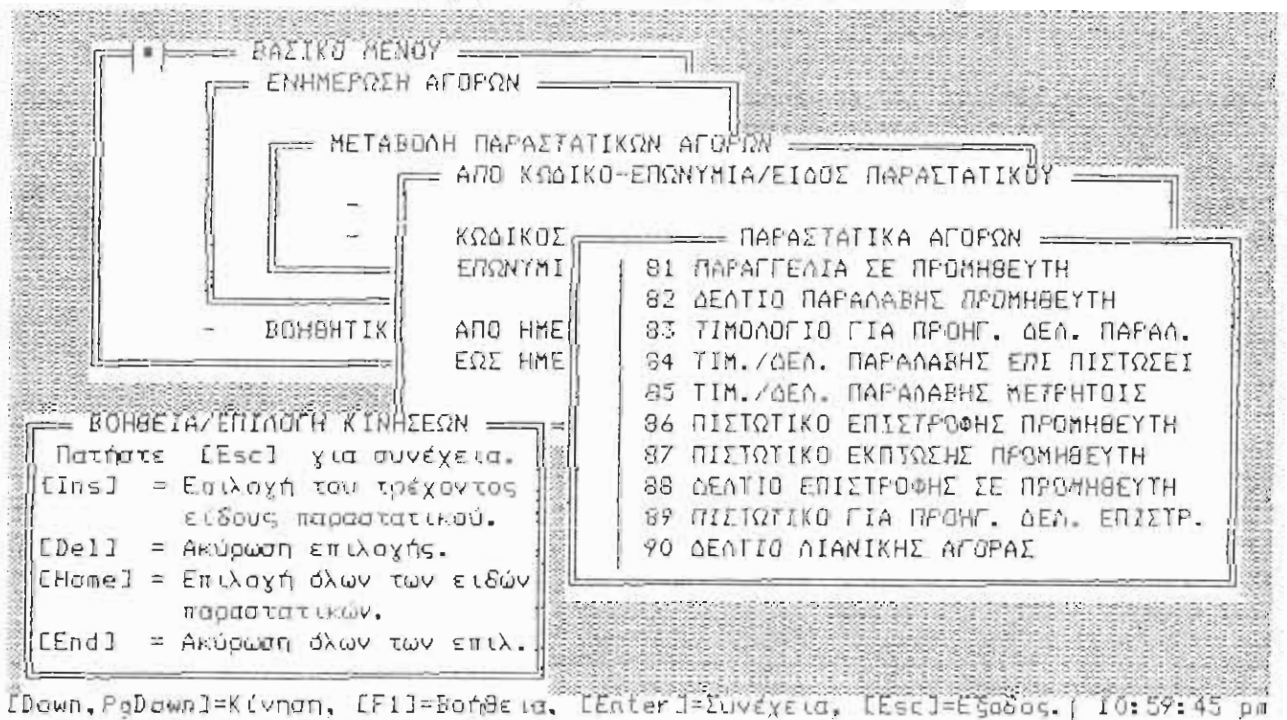 ΒΑΣΙΚΟ ΜΕΝΟΥ
ΕΝΗΜΕΡΩΣΗ ΑΓΟΡΩΝ
ΜΕΤΑΒΟΛΗ ΠΑΡΑΣΤΑΤΙΚΩΝ ΑΓΟΡΩΝ
ΑΠΟ ΚΩΔΙΚΟ-ΕΠΩΝΥΜΙΑ/ΕΙΔΟΣ ΠΑΡΑΣΤΑΤΙΚΟΥ
-
-
ΚΩΔΙΚΟΣ
ΕΠΩΝΥΜΙ
- ΒΟΗΘΗΤΙΚ
ΑΠΟ ΗΜΕ
ΕΩΣ ΗΜΕ
ΠΑΡΑΣΤΑΤΙΚΑ ΑΓΟΡΩΝ
81 ΠΑΡΑΓΓΕΛΙΑ ΣΕ ΠΡΟΜΗΘΕΥΤΗ
82 ΔΕΛΤΙΟ ΠΑΡΑΛΑΒΗΣ ΠΡΟΜΗΘΕΥΤΗ
83 ΤΙΜΟΛΟΓΙΟ ΓΙΑ ΠΡΟΗΓ. ΔΕΛ. ΠΑΡΑΛ.
84 ΤΙΜ./ΔΕΛ. ΠΑΡΑΛΑΒΗΣ ΕΠΙ ΠΙΣΤΩΣΕΙ
85 ΤΙΜ./ΔΕΛ. ΠΑΡΑΛΑΒΗΣ ΜΕΤΡΗΤΟΙΣ
86 ΠΙΣΤΩΤΙΚΟ ΕΠΙΣΤΡΟΦΗΣ ΠΡΟΜΗΘΕΥΤΗ
87 ΠΙΣΤΩΤΙΚΟ ΕΚΠΤΩΣΗΣ ΠΡΟΜΗΘΕΥΤΗ
88 ΔΕΛΤΙΟ ΕΠΙΣΤΡΟΦΗΣ ΣΕ ΠΡΟΜΗΘΕΥΤΗ
89 ΠΙΣΤΩΤΙΚΟ ΓΙΑ ΠΡΟΗΓ. ΔΕΛ. ΕΠΙΣΤΡ.
90 ΔΕΛΤΙΟ ΛΙΑΝΙΚΗΣ ΑΓΟΡΑΣ
ΒΟΗΘΕΙΑ/ΕΠΙΛΟΓΗ ΚΙΝΗΣΕΩΝ
Πατήστε [Esc] για συνέχεια.
[Ins] = Επιλογή του τρέχοντος
είδους παραστατικού.
[Del] = Ακύρωση επιλογής.
[Home] = Επιλογή όλων των ειδών
παραστατικών.
[End] = Ακύρωση όλων των επιλ.
[Down,PgDown]=Κίνηση, [F1]=Βοήθεια, [Enter]=Συνέχεια, [Esc]=Εξοδος.| 10:59:45 pm